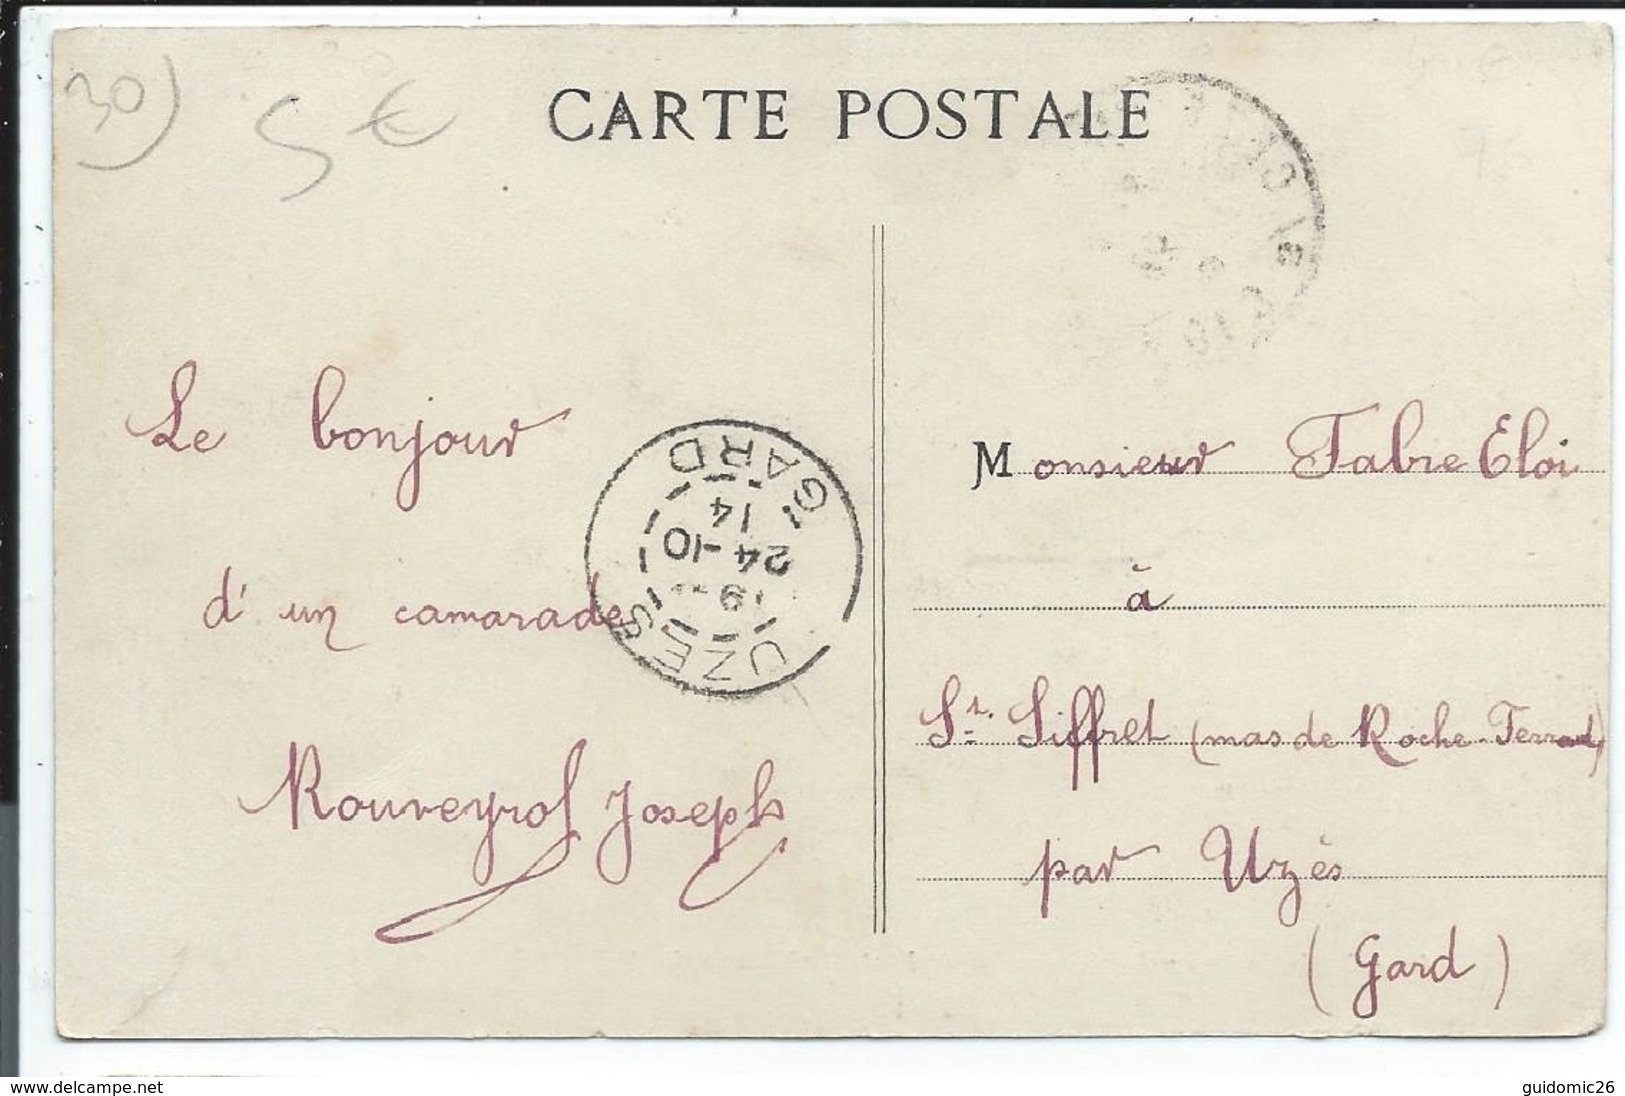 30)
5 €
CARTE POSTALE
Le bonjour
d'un camarade
Rouveyrol Joseph
UZES GARD
19
24-10
14
Monsieur Fabre Eloi
à
St. Siffret (mas de Roche-Terrad)
par Uzès
(Gard)
www.delcampe.net
guidomic26